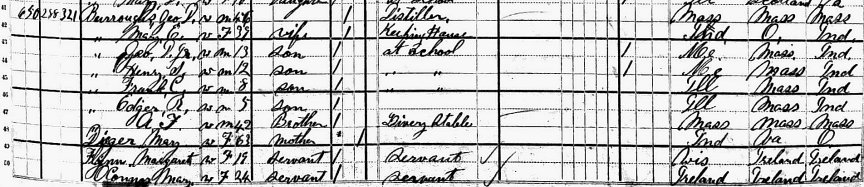 41 650 258 321 Burroughs, Geo. T. w m 46 / Distiller Mass Mass Mass
" Mary C. w F 39 wife / Keeping House Ind O. Ind.
43 " Geo. T. Jr. w m 13 son at school / Me. Mass. Ind
44 " Henry w m 12 son " " / Me Mass Ind
45 " Frank w m 8 son / " " Ill Mass Ind
46 " Edger, R, w m 5 son / Ill Mass Ind
" A. F w m 42 Brother / Livery Stable Mass Mass Mass
Mary w F 63 mother / Ind Va O
49 Flynn Margaret w F 19 servant / servant Wis Ireland Ireland
50 O'Connor Mary w F 24 servant / servant Ireland Ireland Ireland